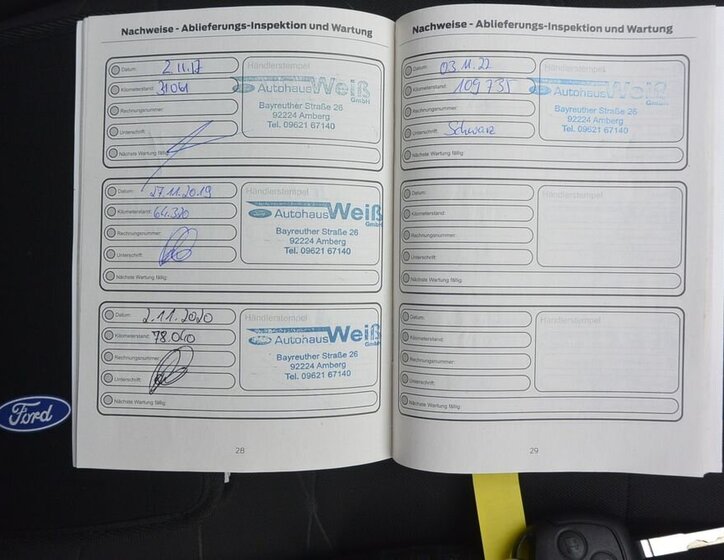 Nachweise - Ablieferungs-Inspektion und Wartung
Datum: 2.11.17
Kilometerstand:
Rechnungsnummer:
Unterschrift:
Nächste Wartung fällig:
Händlerstempel
Autohaus Weiß
GmbH
Bayreuther Straße 26
92224 Amberg
Tel. 09621 67140
Datum: 27.11.2019
Kilometerstand: 64.320
Rechnungsnummer:
Unterschrift:
Nächste Wartung fällig:
Händlerstempel
Autohaus Weiß
GmbH
Bayreuther Straße 26
92224 Amberg
Tel. 09621 67140
Datum: 2.11.2020
Kilometerstand: 78.040
Rechnungsnummer:
Unterschrift:
Nächste Wartung fällig:
Händlerstempel
Autohaus Weiß
GmbH
Bayreuther Straße 26
92224 Amberg
Tel. 09621 67140
28
Nachweise - Ablieferungs-Inspektion und Wartung
Datum: 03.11.22
Kilometerstand: 109735
Rechnungsnummer:
Unterschrift: Schwarz
Nächste Wartung fällig:
Händlerstempel
Autohaus Weiß
GmbH
Bayreuther Straße 26
92224 Amberg
Tel. 09621 67140
Datum:
Kilometerstand:
Rechnungsnummer:
Unterschrift:
Nächste Wartung fällig:
Händlerstempel
Datum:
Kilometerstand:
Rechnungsnummer:
Unterschrift:
Nächste Wartung fällig:
Händlerstempel
29
Ford